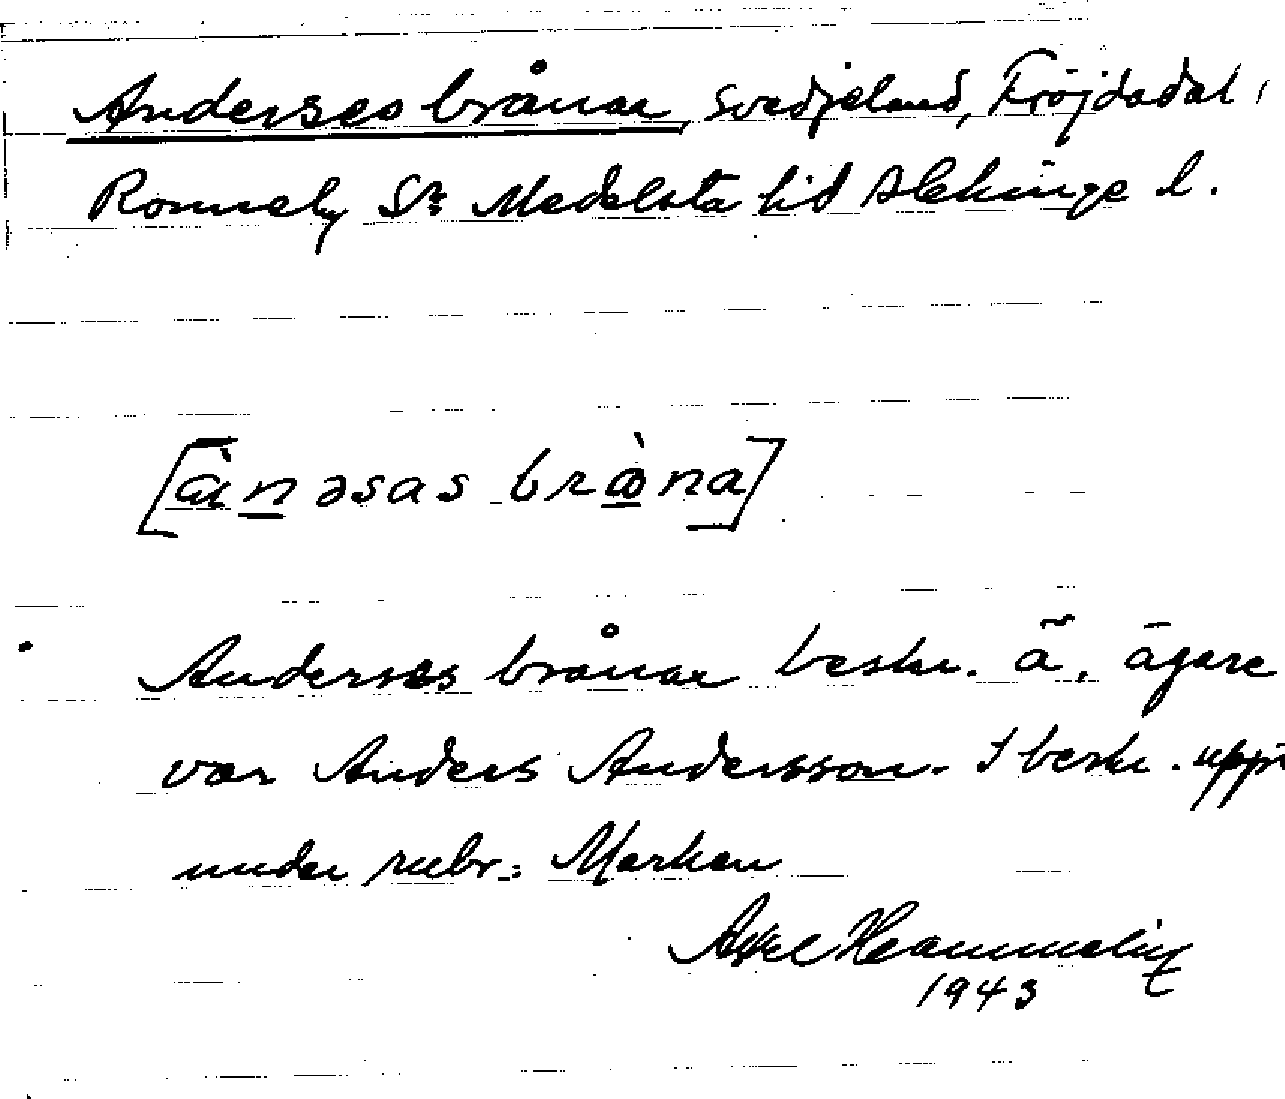 Anderses brånar, svedjeland, Fröjdadal,
Ronneby Sn Medelsta hd Blekinge l.
[ànəsas bràna]
Anderses brånar beskr. ä, ägare
var Anders Andersson. I beskr. uppt
under rubr: Marken
Axel Hammelin
1943